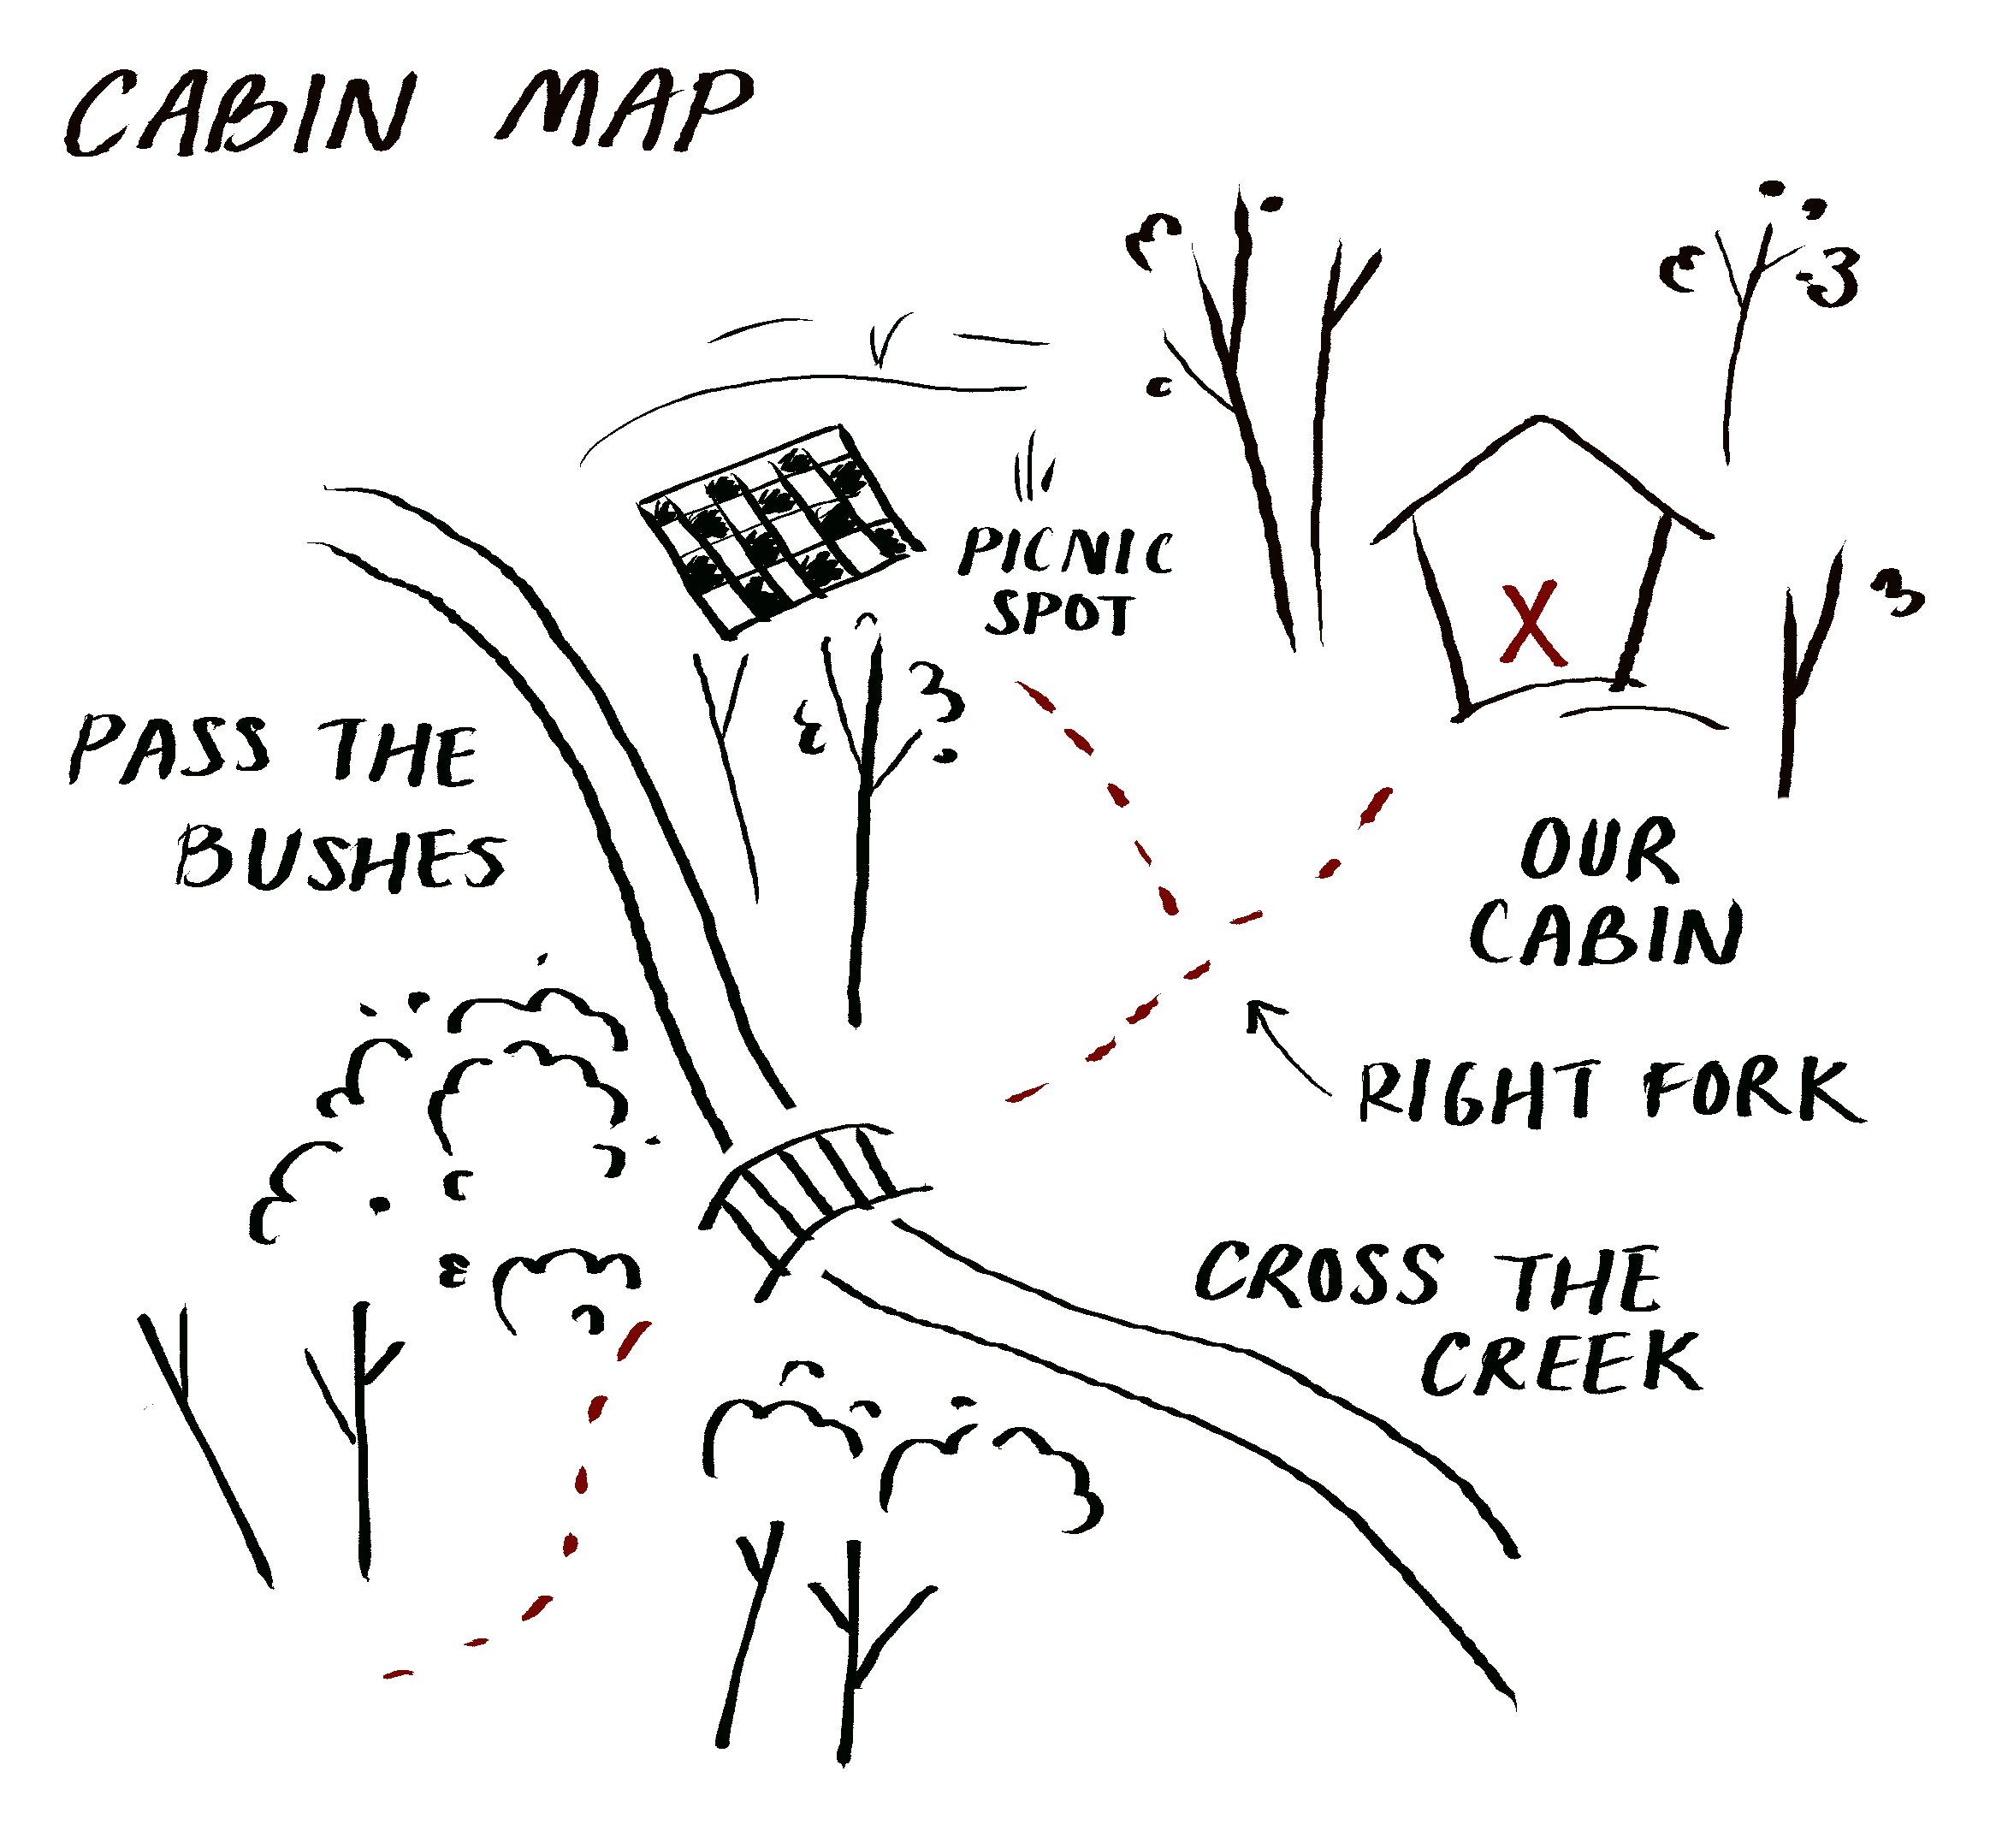 CABIN MAP
PICNIC
SPOT
PASS THE
BUSHES
X
OUR
CABIN
RIGHT FORK
CROSS THE
CREEK